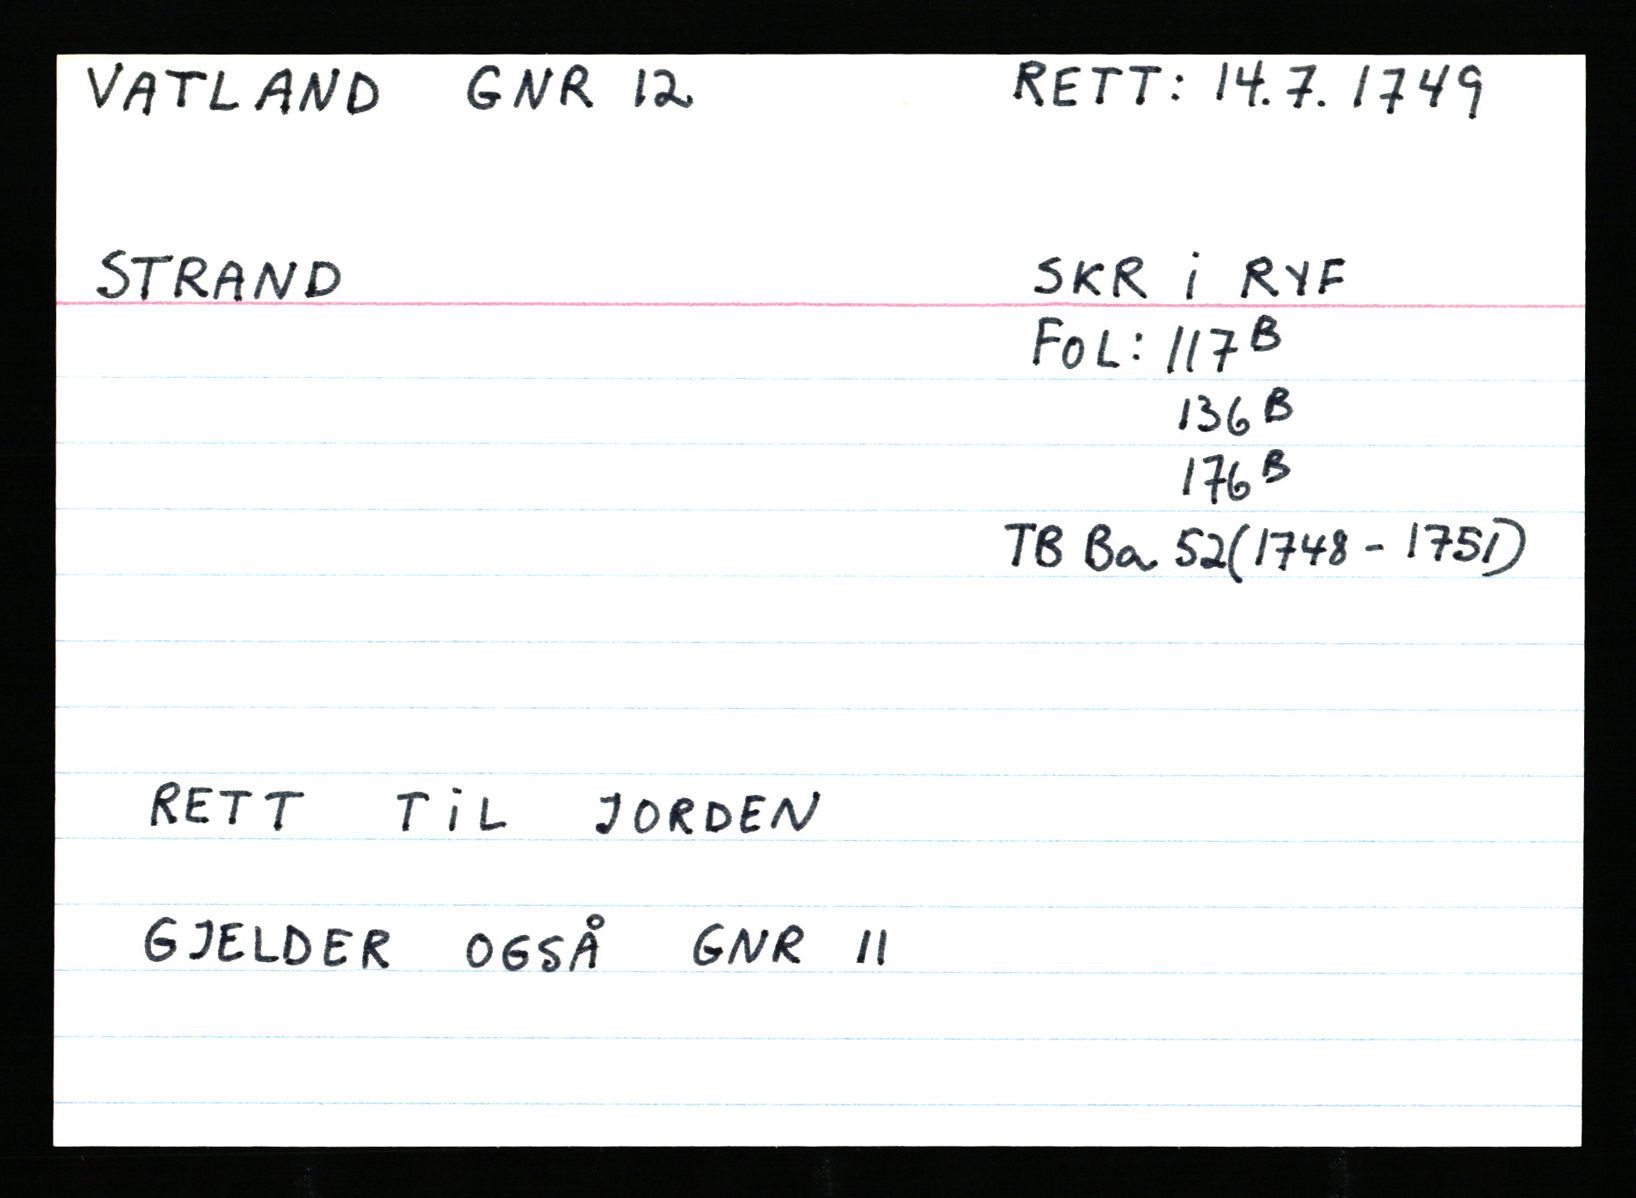 VATLAND GNR 12 RETT: 14.7.1749
STRAND SKR i RYF
FOL: 117B
136B
176B
TB Ba 52(1748-1751)
RETT TiL JORDEN
GJELDER OGSÅ GNR 11